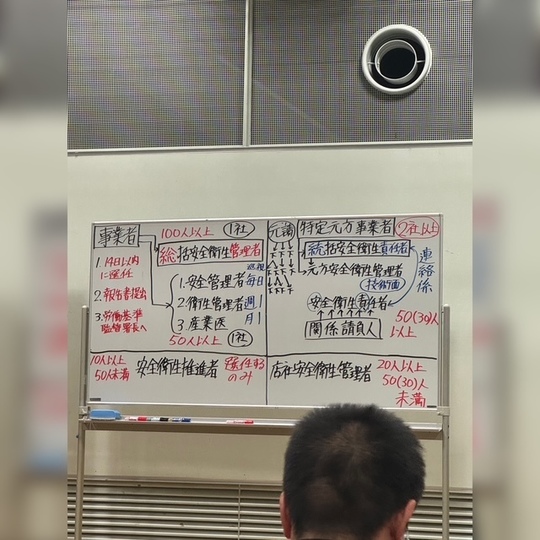 事業者
100人以上 1社
総括安全衛生管理者
1. 14日以内
に選任
2. 報告書提出
3. 労働基準
監督署長へ
巡視
1. 安全管理者 毎日
2. 衛生管理者 週1
3. 産業医 月1
50人以上 1社
元請
特定元方事業者 2社以上
統括安全衛生責任者
元方安全衛生管理者
技術面
連絡係
安全衛生責任者
関係請負人
50(30)人
以上
10人以上
50人未満
安全衛生推進者
選任する
のみ
店社安全衛生管理者
20人以上
50(30)人
未満